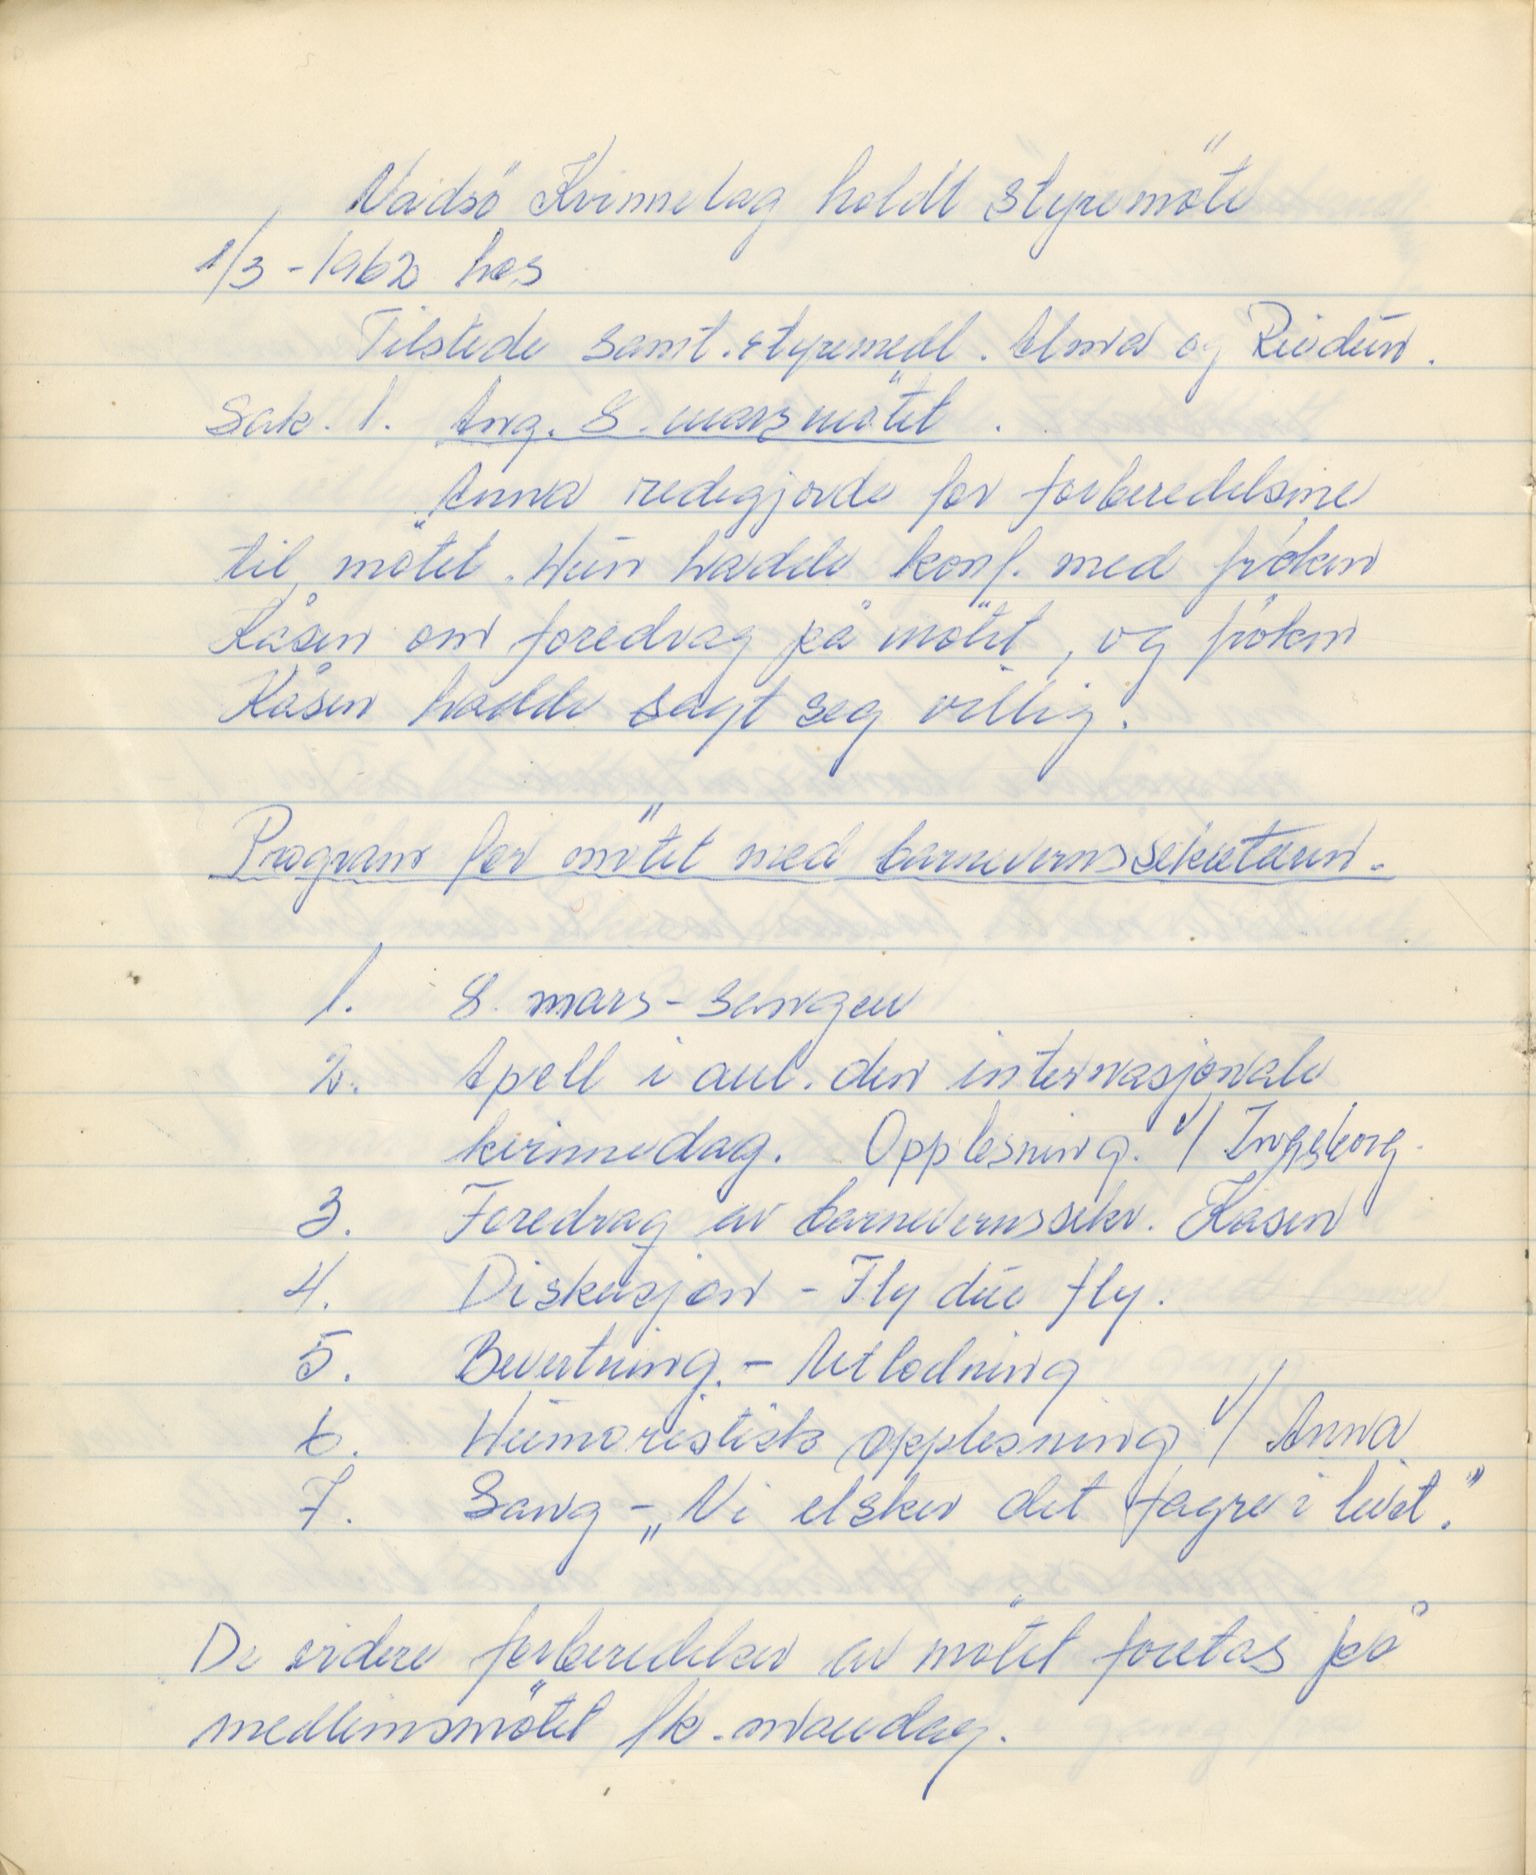 Vadsö Kvinnelag holdt styremöte
1/3 - 1962 hos
Tilstede samt. styremedl. Alma og Reidun.
Sak. 1. Ang. 8. marsmötet.
Anna redegjorde for forberedelsene
til mötet. Hun hadde konf. med fröken
Kåsen om foredrag på mötet, og fröken
Kåsen hadde sagt seg villig.
Program for mötet med barnevernssekretæren.
1. 8. mars-sangen
2. Apell i anl. den internasjonale
kvinnedag. Opplesning. v/ Ingeborg.
3. Foredrag av barnevernssekr. Kåsen
4. Diskusjon - Fly due fly.
5. Bevertning. - Utlodning
6. Humoristisk opplesning v/ Anna
7. Sang - „Vi elsker det fagre i livet."
De videre forberedelser av mötet foretas på
medlemsmötet fk. mandag.